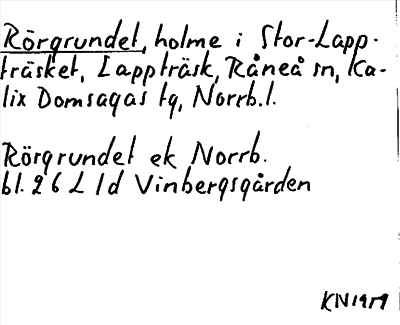 Rörgrundet, holme i Stor-Lapp-
träsket, Lappträsk, Råneå sn, Ka-
lix Domsagas tg, Norrb.l.
Rörgrundet ek Norrb.
bl. 26 L 1d Vinbergsgården